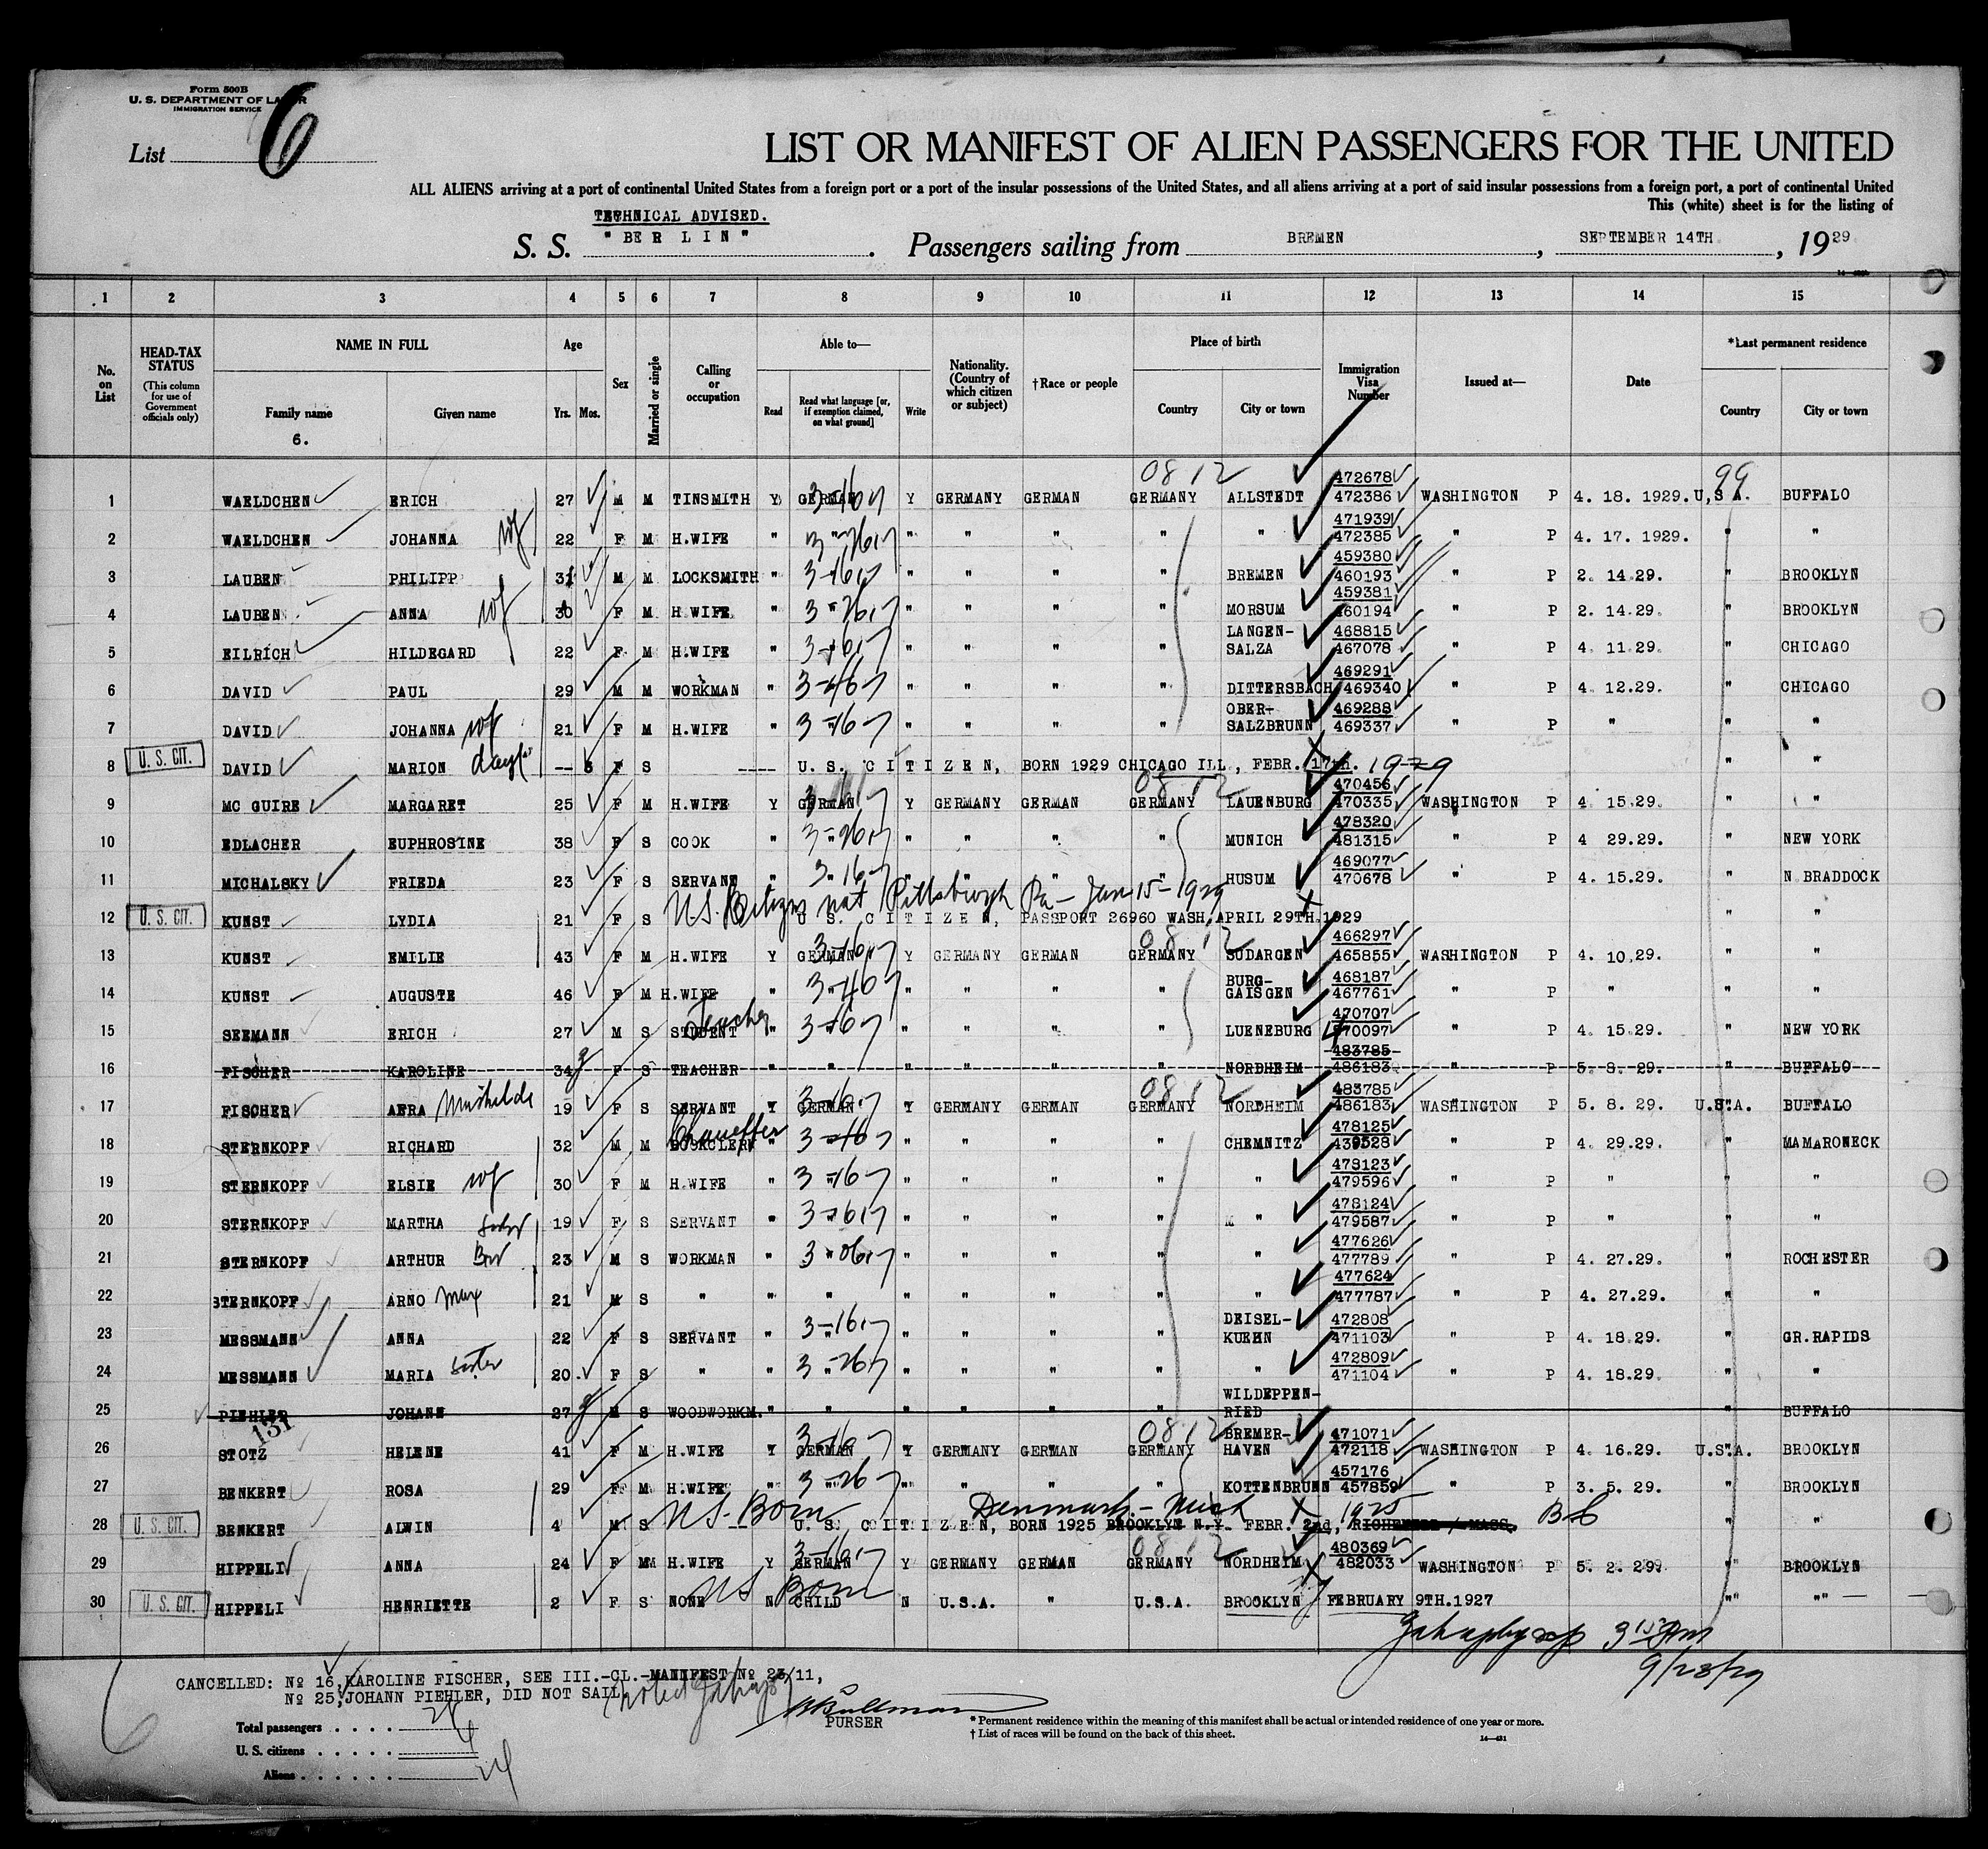 Form 500B
U. S. DEPARTMENT OF LABOR
IMMIGRATION SERVICE
List 6
LIST OR MANIFEST OF ALIEN PASSENGERS FOR THE UNITED
ALL ALIENS arriving at a port of continental United States from a foreign port or a port of the insular possessions of the United States, and all aliens arriving at a port of said insular possessions from a foreign port, a port of continental United
This (white) sheet is for the listing of
TECHNICAL ADVISED.
S. S. "BERLIN". Passengers sailing from BREMEN, SEPTEMBER 14TH, 1929
1 2 3 4 5 6 7 8 9 10 11 12 13 14 15
No. on List
HEAD-TAX STATUS (This column for use of Government officials only)
NAME IN FULL Family name 6. Given name
Age Yrs. Mos.
Sex
Married or single
Calling or occupation
Able to— Read Read what language [or, if exemption claimed, on what ground] Write
Nationality. (Country of which citizen or subject)
†Race or people
Place of birth Country City or town
Immigration Visa Number
Issued at—
Date
*Last permanent residence Country City or town
0812 99
1 WAELDCHEN ERICH 27 M M TINSMITH Y GERMAN Y GERMANY GERMAN GERMANY ALLSTEDT 472678 472386 WASHINGTON P 4. 18. 1929. U.S.A. BUFFALO
2 WAELDCHEN JOHANNA wf 22 F M H.WIFE " " " " " " " 471939 472385 " P 4. 17. 1929. " "
3 LAUBEN PHILIPP 31 M M LOCKSMITH " " " " " " BREMEN 459380 460193 " P 2. 14.29. " BROOKLYN
4 LAUBEN ANNA wf 30 F M H.WIFE " " " " " " MORSUM 459381 460194 " P 2. 14.29. " BROOKLYN
5 EILRICH HILDEGARD 22 F M H.WIFE " " " " " " LANGEN-SALZA 468815 467078 " P 4. 11.29. " CHICAGO
6 DAVID PAUL 29 M M WORKMAN " " " " " " DITTERSBACH 469291 469340 " P 4. 12.29. " CHICAGO
7 DAVID JOHANNA wf 21 F M H.WIFE " " " " " " OBER-SALZBRUNN 469288 469337 " P " " "
8 U. S. CIT. DAVID MARION -- F S ---- U. S. CITIZEN, BORN 1929 CHICAGO ILL, FEBR. 17th. 1929 " "
0812
9 MC GUIRE MARGARET 25 F M H.WIFE Y GERMAN Y GERMANY GERMAN GERMANY LAUENBURG 470456 470335 WASHINGTON P 4 15.29. " "
10 EDLACHER EUPHROSINE 38 F S COOK " " " " " " MUNICH 478320 481315 " P 4 29.29. " NEW YORK
11 MICHALSKY FRIEDA 23 F S SERVANT " " " " " " HUSUM 469077 470678 " P 4. 15.29. " N.BRADDOCK
U.S. Citizen nat Pittsburgh Pa - Jan 15-1929
12 U. S. CIT. KUNST LYDIA 21 F S U. S. CITIZEN, PASSPORT 26960 WASH. APRIL 29TH.1929 " "
0812
13 KUNST EMILIE 43 F M H.WIFE Y GERMAN Y GERMANY GERMAN GERMANY SUDARGEN 466297 465855 WASHINGTON P 4. 10.29. " "
14 KUNST AUGUSTE 46 F M H.WIFE " " " " " " BURG-GAISGEN 468187 467761 " P " " "
Teacher
15 SEEMANN ERICH 27 M S STUDENT " " " " " " LUENEBURG 470707 470097 " P 4. 15.29. " NEW YORK
16 FISCHER KAROLINE 34 F S TEACHER " " " " " " NORDHEIM 483785 486183 " P 5. 8. 29. " BUFFALO
0812
17 FISCHER AFRA 19 F S SERVANT Y GERMAN Y GERMANY GERMAN GERMANY NORDHEIM 483785 486183 WASHINGTON P 5. 8. 29. U.S.A. BUFFALO
Chauffer
18 STERNKOPF RICHARD 32 M M BOOKCLERK " " " " " " CHEMNITZ 478125 439528 " P 4. 29.29. " MAMARONECK
19 STERNKOPF ELSIE wf 30 F M H.WIFE " " " " " " " 478123 479596 " P " " "
20 STERNKOPF MARTHA 19 F S SERVANT " " " " " " " 478124 479587 " P " " "
21 STERNKOPF ARTHUR Bro 23 M S WORKMAN " " " " " " " 477626 477789 " P 4. 27.29. " ROCHESTER
22 STERNKOPF ARNO Max 21 M S " " " " " " " " 477624 477787 " P 4. 27.29. " "
23 MESSMANN ANNA 22 F S SERVANT " " " " " " DEISEL-KUEHN 472808 471103 " P 4. 18.29. " GR.RAPIDS
24 MESSMANN MARIA Sister 20 F S " " " " " " " " 472809 471104 " P 4. 18.29. " "
25 PIEHLER JOHANN 27 M S WOODWORKM. " " " " " " WILDEPPEN-RIED " BUFFALO
131 0812
26 STOTZ HELENE 41 F M H.WIFE Y GERMAN Y GERMANY GERMAN GERMANY BREMER-HAVEN 471071 472118 WASHINGTON P 4. 16.29. U.S.A. BROOKLYN
27 BENKERT ROSA 29 F M H.WIFE " " " " " " KOTTENBRUNN 457176 457859 " P 3. 5. 29. " BROOKLYN
US-Born Denmark - Mich 1925 BC
28 U. S. CIT. BENKERT ALWIN 4 M S -- U. S. CITIZEN, BORN 1925 BROOKLYN N.Y. FEBR. 2nd, " "
0812
29 HIPPELI ANNA 24 F M H.WIFE Y GERMAN Y GERMANY GERMAN GERMANY NORDHEIM 480369 482033 WASHINGTON P 5. 2. 29. " BROOKLYN
US Born
30 U. S. CIT. HIPPELI HENRIETTE 2 F S NONE N CHILD N U.S.A. " U.S.A. BROOKLYN FEBRUARY 9TH.1927 " "
9/23/29
CANCELLED: No 16, KAROLINE FISCHER, SEE III.-CL.-MANIFEST No 23/11,
No 25, JOHANN PIEHLER, DID NOT SAIL,
PURSER
Total passengers . . . . 28
U. S. citizens . . . . . 4
Aliens . . . . . . 24
* Permanent residence within the meaning of this manifest shall be actual or intended residence of one year or more.
† List of races will be found on the back of this sheet.
14—431
6